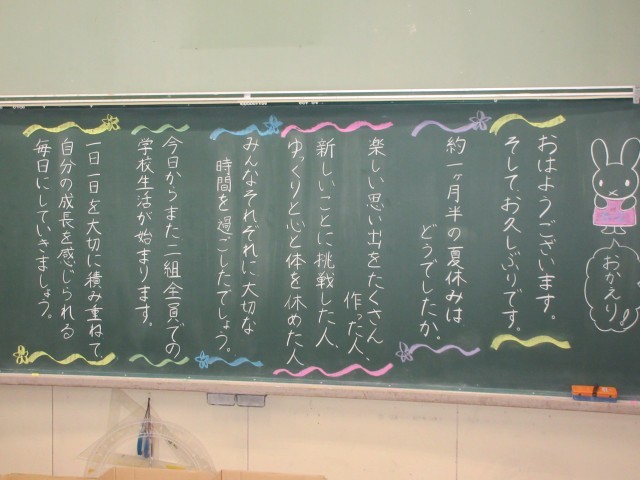 おかえり
おはようございます。
そして、お久しぶりです。
約一ヶ月半の夏休みは
どうでしたか。
楽しい思い出をたくさん
作った人、
新しいことに挑戦した人
ゆっくりと心と体を休めた人
みんなそれぞれに大切な
時間を過ごしたでしょう。
今日からまた二組全員での
学校生活が始まります。
一日一日を大切に積み重ねて、
自分の成長を感じられる
毎日にしていきましょう。